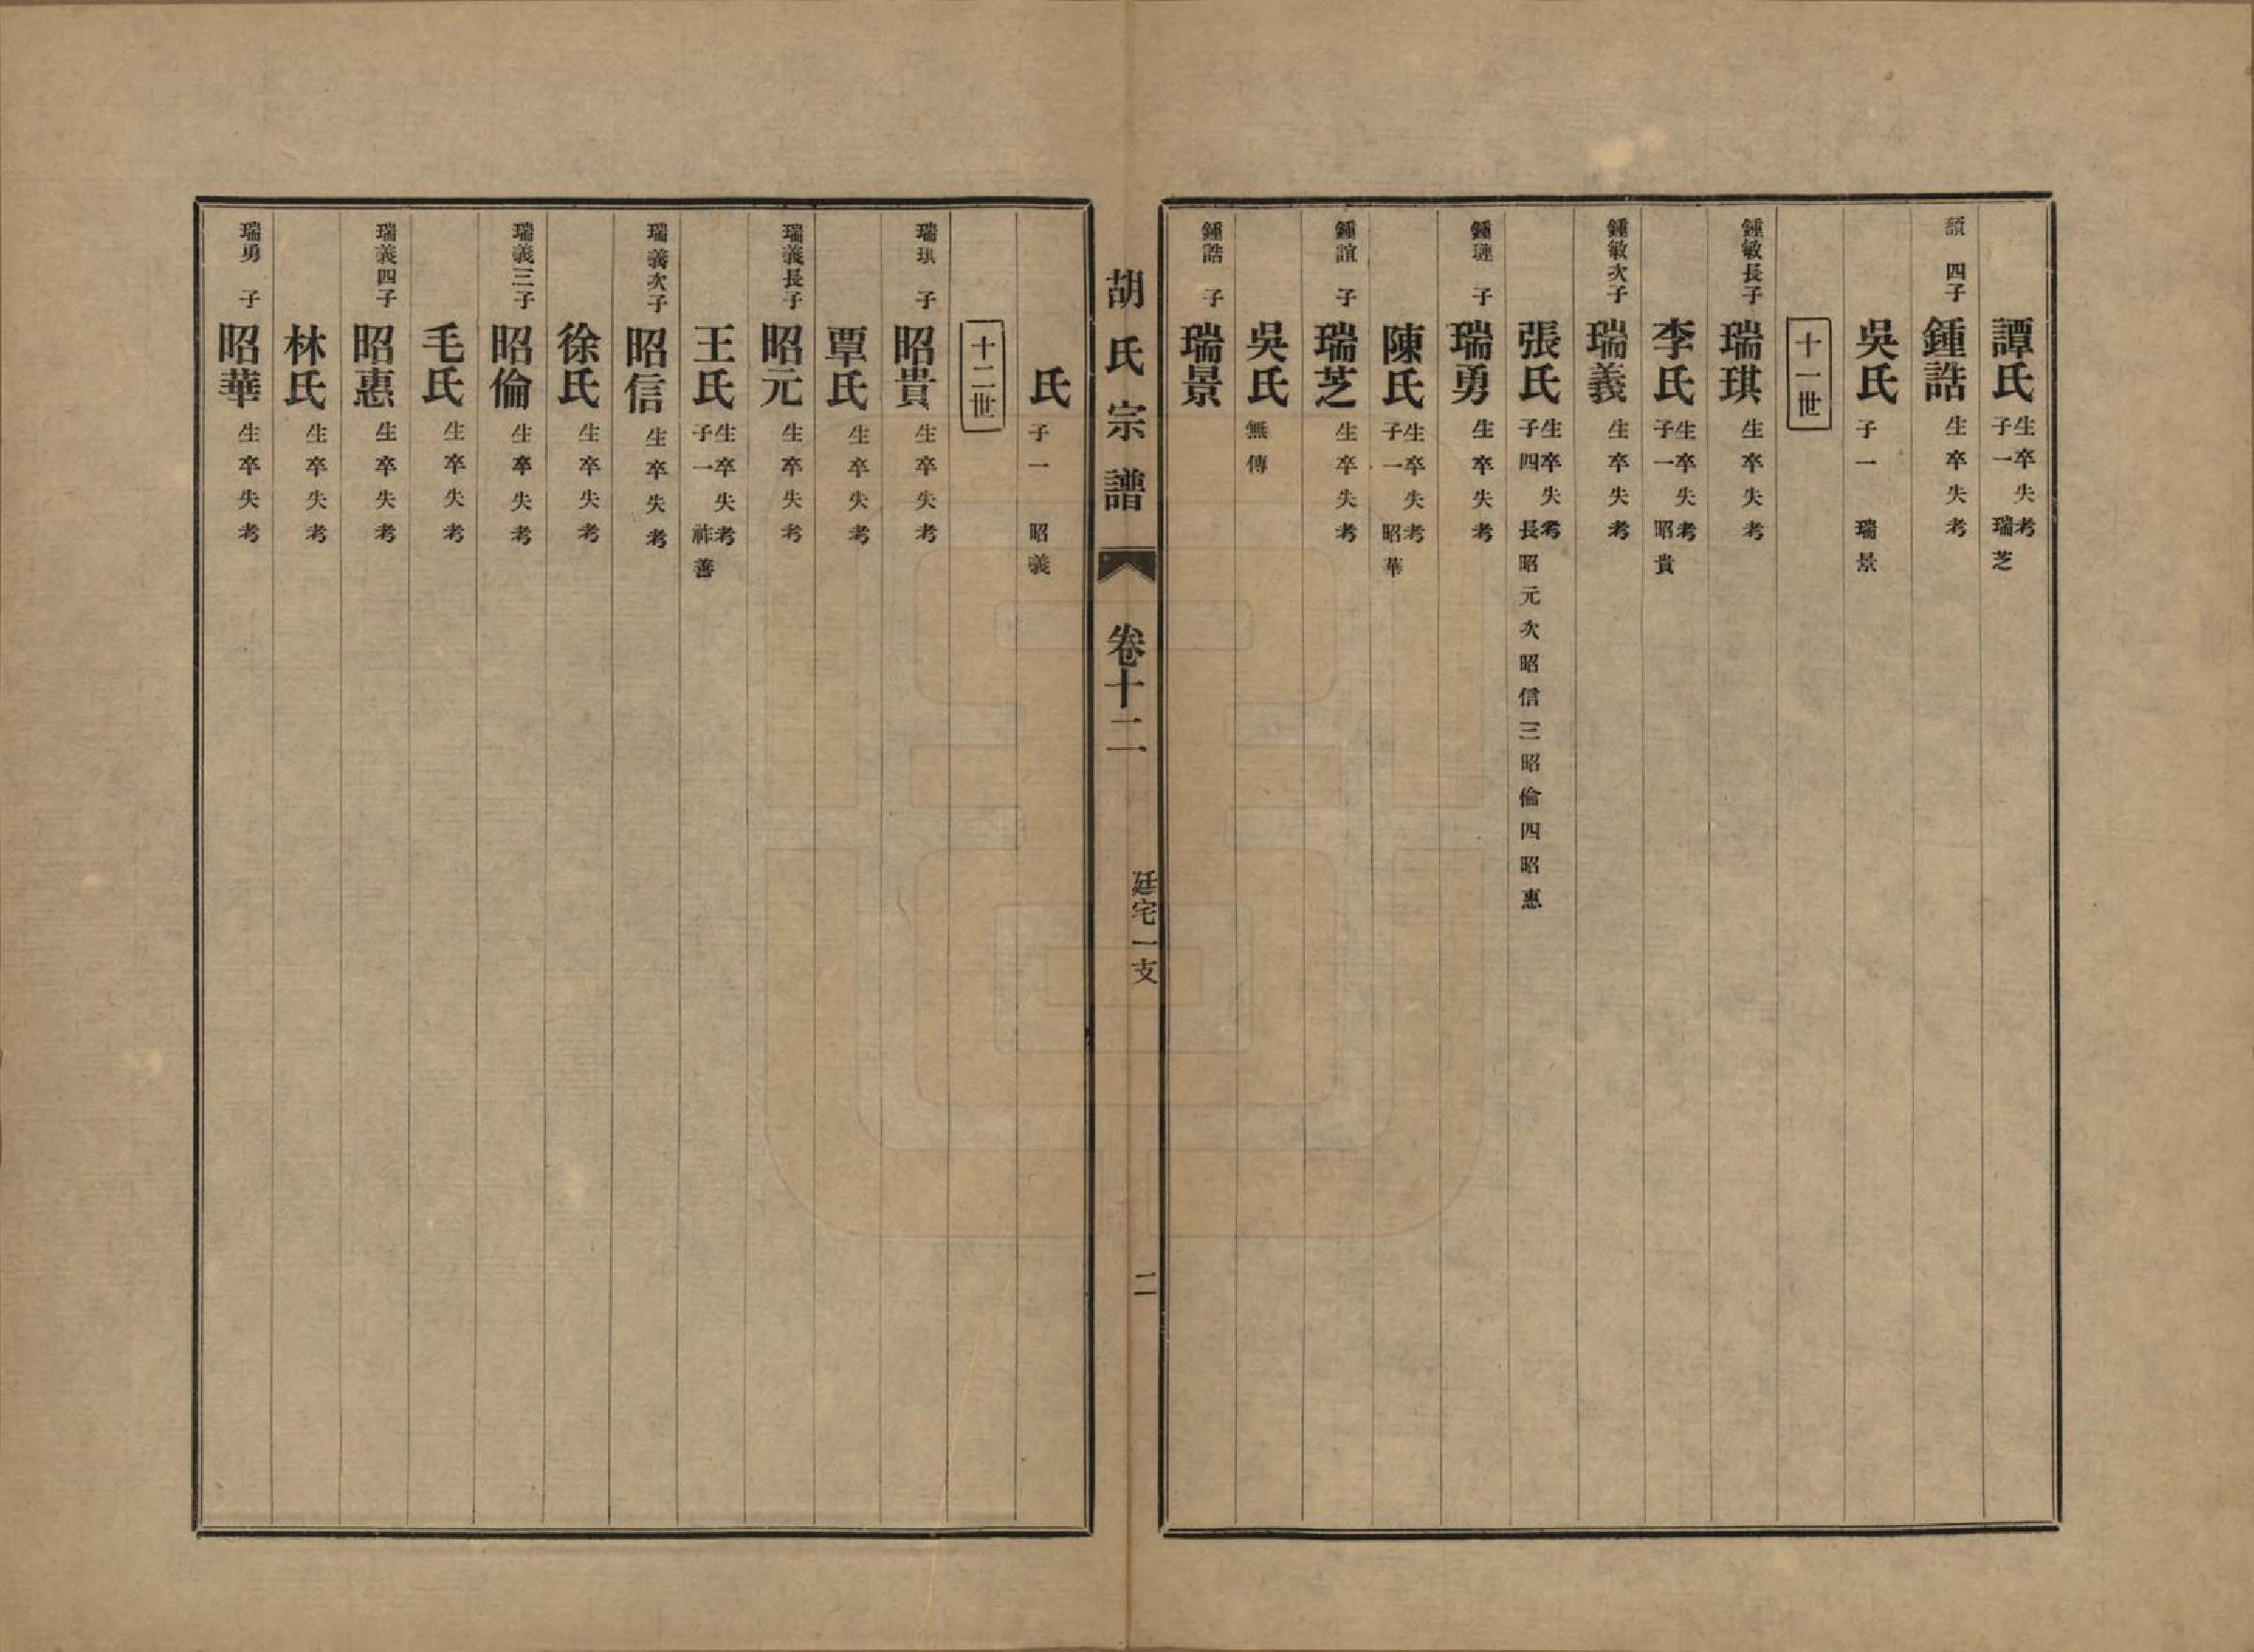 譚氏 生卒失考 子一 瑞芝
頀 四子 鍾誥 生卒失考
吳氏 子一 瑞景
十一世
鍾敏長子 瑞琪 生卒失考
李氏 生卒失考 子一 昭貴
鍾敏次子 瑞義 生卒失考
張氏 生卒失考 子四 長昭元次昭信三昭倫四昭惠
鍾璉 子 瑞勇 生卒失考
陳氏 生卒失考 子一 昭華
鍾誼 子 瑞芝 生卒失考
吳氏 無傳
鍾誥 子 瑞景
胡氏宗譜 卷十二 廷宅一支 二
氏 子一 昭義
十二世
瑞琪 子 昭貴 生卒失考
覃氏 生卒失考
瑞義長子 昭元 生卒失考
王氏 生卒失考 子一 祚善
瑞義次子 昭信 生卒失考
徐氏 生卒失考
瑞義三子 昭倫 生卒失考
毛氏 生卒失考
瑞義四子 昭惠 生卒失考
林氏 生卒失考
瑞勇 子 昭華 生卒失考